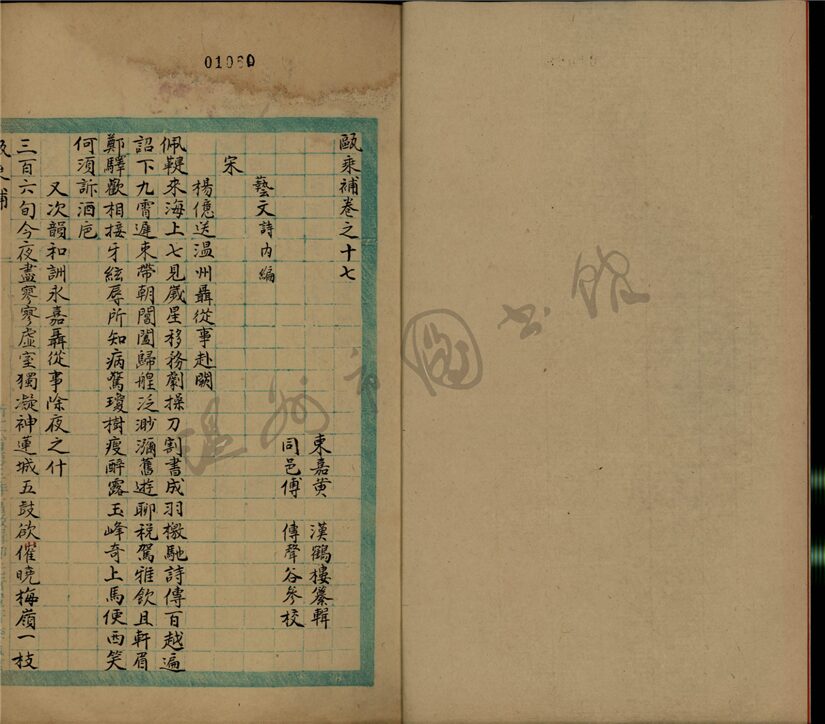 01060
甌乘補卷之十七
東嘉黃 漢鶴樓纂輯
同邑傅 傅聲谷參校
藝文詩內編
宋
楊億送溫州聶從事赴闕
佩鞬來海上七見歲星移務劇操刀割書成羽檄馳詩傳百越遍
詔下九霄遲束帶朝閶闔歸艎泛渺瀰舊遊聊稅駕雅飲且軒眉
鄭驛歡相接牙絃辱所知病驚瓊樹瘦醉露玉峰奇上馬便西笑
何須訴酒巵
又次韻和詶永嘉聶從事除夜之什
三百六旬今夜盡寥寥虛室獨凝神蓮城五鼓欲催曉梅嶺一枝
溫州市圖書館